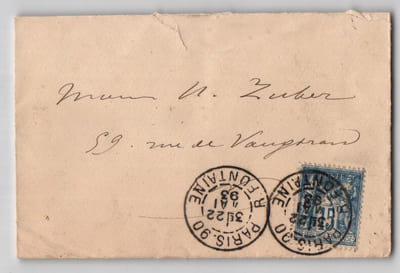 H. Zuber
59 rue de Vaugirard
PARIS-90
R. FONTAINE
3E 22
MAI
93
PARIS-90
R. FONTAINE
3E 22
MAI
93